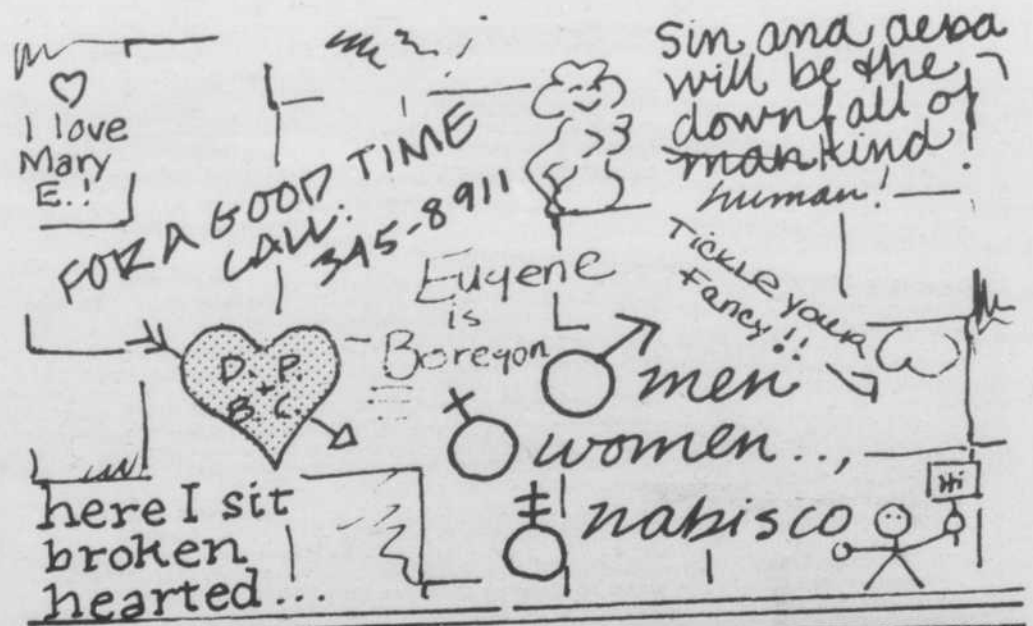 I love
Mary
E.!
FOR A GOOD TIME
CALL:
345-8911
sin and
will be the
downfall of
mankind!
human!
Eugene
is
Boregon
Tickle your
Fancy!!
D. P.
+
B. C.
men
women..,
nabisco
Hi
here I sit
broken
hearted...